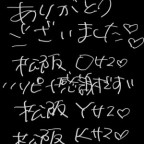 ありがとう
ございました♡♡
松阪 O42♡
ハッピー感謝です
松阪 Y42♡
松阪 K42♡